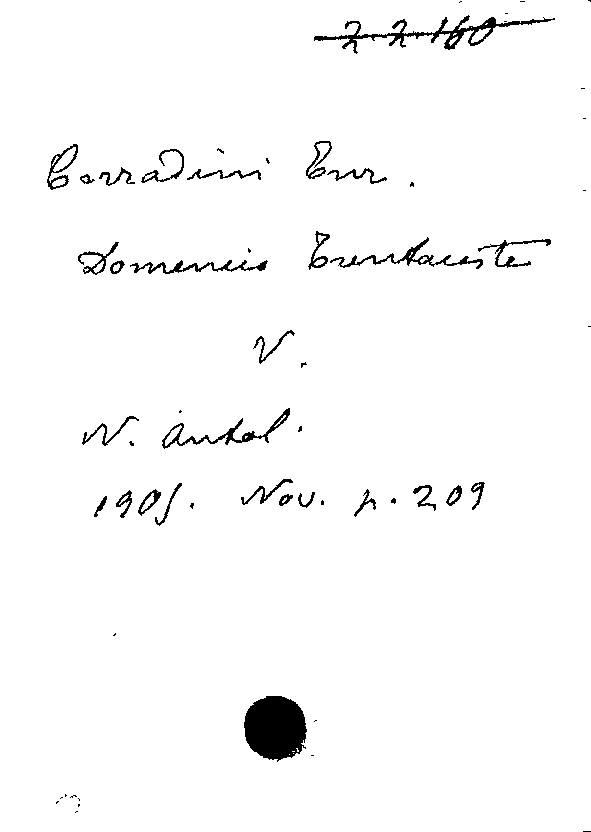 2.2.160
Corradini Enr.
Domenico Trentacoste
V.
N. Antol.
1905. Nov. p. 209